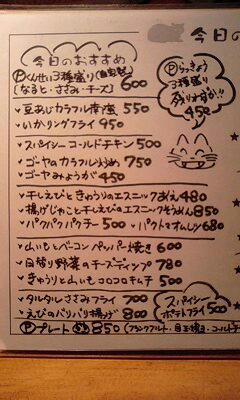 今日のおすすめ
今日の
Ⓟくんせい3種盛り(自家製) 600
[なると・ささみ・チーズ]
豆あじカラフル南蛮 550
いかリングフライ 950
スパイシーコールドチキン 500
ゴーヤのカラフル炒め 750
ゴーヤみょうが 450
干しえびときゅうりのエスニックあえ 480
揚げじゃこと干しえびのエスニックそうめん 850
パクパクパクチー 500
パクトマオムレツ 680
山いもとベーコンペッパー焼き 600
日替り野菜のチーズディップ 780
きゅうりと山いもコロコロキムチ 500
タルタルささみフライ 700
えびのパリパリ揚げ 800
Ⓟプレート 850 (フランクフルト・目玉焼き・コールドチ
Ⓟらっきょう
3種盛り
あります!!
450
スパイシー
ポテトフライ
500